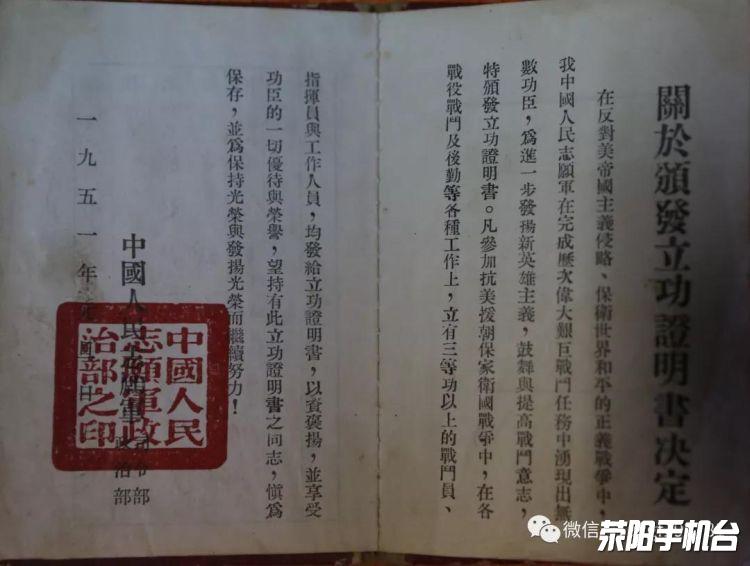 關於頒發立功證明書决定
在反對美帝國主義侵略、保衛世界和平的正義戰爭中，
我中國人民志願軍在完成歷次偉大艱巨戰鬥任務中湧現出無
數功臣，爲進一步發揚新英雄主義，鼓舞與提高戰鬥意志，
特頒發立功證明書。凡參加抗美援朝保家衛國戰爭中，在各
戰役戰鬥及後勤等各種工作上，立有三等功以上的戰鬥員、
指揮員與工作人員，均發給立功證明書，以資褒揚，並享受
功臣的一切優待與榮譽，望持有此立功證明書之同志，愼爲
保存，並爲保持光榮與發揚光榮而繼續努力！
中國人民志願軍
司令部
政治部
一九五一年
中國人民
志願軍政
治部之印
微信
荥阳手机台